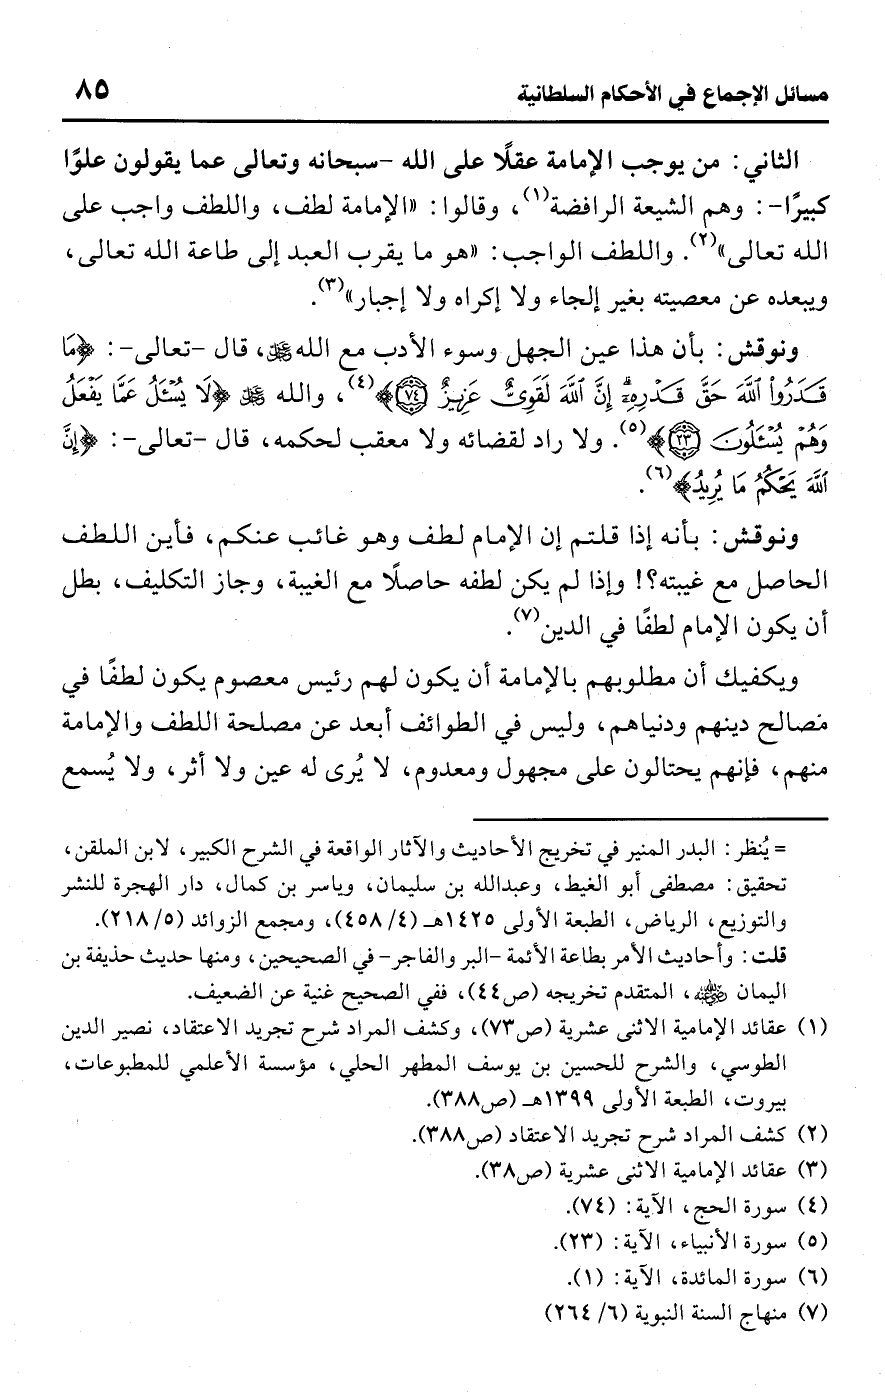 مسائل الإجماع في الأحكام السلطانية ٨٥
الثاني: من يوجب الإمامة عقلًا على الله -سبحانه وتعالى عما يقولون علوًا
كبيرًا-: وهم الشيعة الرافضة(١)، وقالوا: «الإمامة لطف، واللطف واجب على
الله تعالى»(٢). واللطف الواجب: «هو ما يقرب العبد إلى طاعة الله تعالى،
ويبعده عن معصيته بغير إلجاء ولا إكراه ولا إجبار»(٣).
ونوقش: بأن هذا عين الجهل وسوء الأدب مع الله ﷻ، قال -تعالى-: ﴿مَا
قَدَرُواْ ٱللَّهَ حَقَّ قَدْرِهِۦٓۗ إِنَّ ٱللَّهَ لَقَوِىٌّ عَزِيزٌ ٧٤﴾(٤)، والله ﷻ ﴿لَا يُسْـَٔلُ عَمَّا يَفْعَلُ
وَهُمْ يُسْـَٔلُونَ ٢٣﴾(٥). ولا راد لقضائه ولا معقب لحكمه، قال -تعالى-: ﴿إِنَّ
ٱللَّهَ يَحْكُمُ مَا يُرِيدُ﴾(٦).
ونوقش: بأنه إذا قلتم إن الإمام لطف وهو غائب عنكم، فأين اللطف
الحاصل مع غيبته؟! وإذا لم يكن لطفه حاصلًا مع الغيبة، وجاز التكليف، بطل
أن يكون الإمام لطفًا في الدين(٧).
ويكفيك أن مطلوبهم بالإمامة أن يكون لهم رئيس معصوم يكون لطفًا في
مصالح دينهم ودنياهم، وليس في الطوائف أبعد عن مصلحة اللطف والإمامة
منهم، فإنهم يحتالون على مجهول ومعدوم، لا يُرى له عين ولا أثر، ولا يُسمع
= يُنظر: البدر المنير في تخريج الأحاديث والآثار الواقعة في الشرح الكبير، لابن الملقن،
تحقيق: مصطفى أبو الغيط، وعبدالله بن سليمان، وياسر بن كمال، دار الهجرة للنشر
والتوزيع، الرياض، الطبعة الأولى ١٤٢٥هـ (٤/ ٤٥٨)، ومجمع الزوائد (٥/ ٢١٨).
قلت: وأحاديث الأمر بطاعة الأئمة -البر والفاجر- في الصحيحين، ومنها حديث حذيفة بن
اليمان رضي الله عنه، المتقدم تخريجه (ص٤٤)، ففي الصحيح غنية عن الضعيف.
(١) عقائد الإمامية الاثنى عشرية (ص٧٣)، وكشف المراد شرح تجريد الاعتقاد، نصير الدين
الطوسي، والشرح للحسين بن يوسف المطهر الحلي، مؤسسة الأعلمي للمطبوعات،
بيروت، الطبعة الأولى ١٣٩٩هـ (ص٣٨٨).
(٢) كشف المراد شرح تجريد الاعتقاد (ص٣٨٨).
(٣) عقائد الإمامية الاثنى عشرية (ص٣٨).
(٤) سورة الحج، الآية: (٧٤).
(٥) سورة الأنبياء، الآية: (٢٣).
(٦) سورة المائدة، الآية: (١).
(٧) منهاج السنة النبوية (٦/ ٢٦٤)